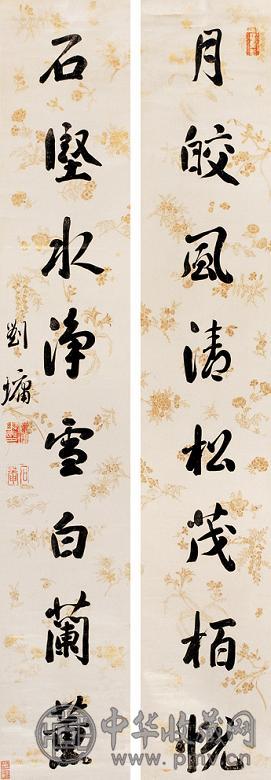 月皎風清松茂柏悦
石堅水淨雪白蘭薰
劉墉
中华收藏网